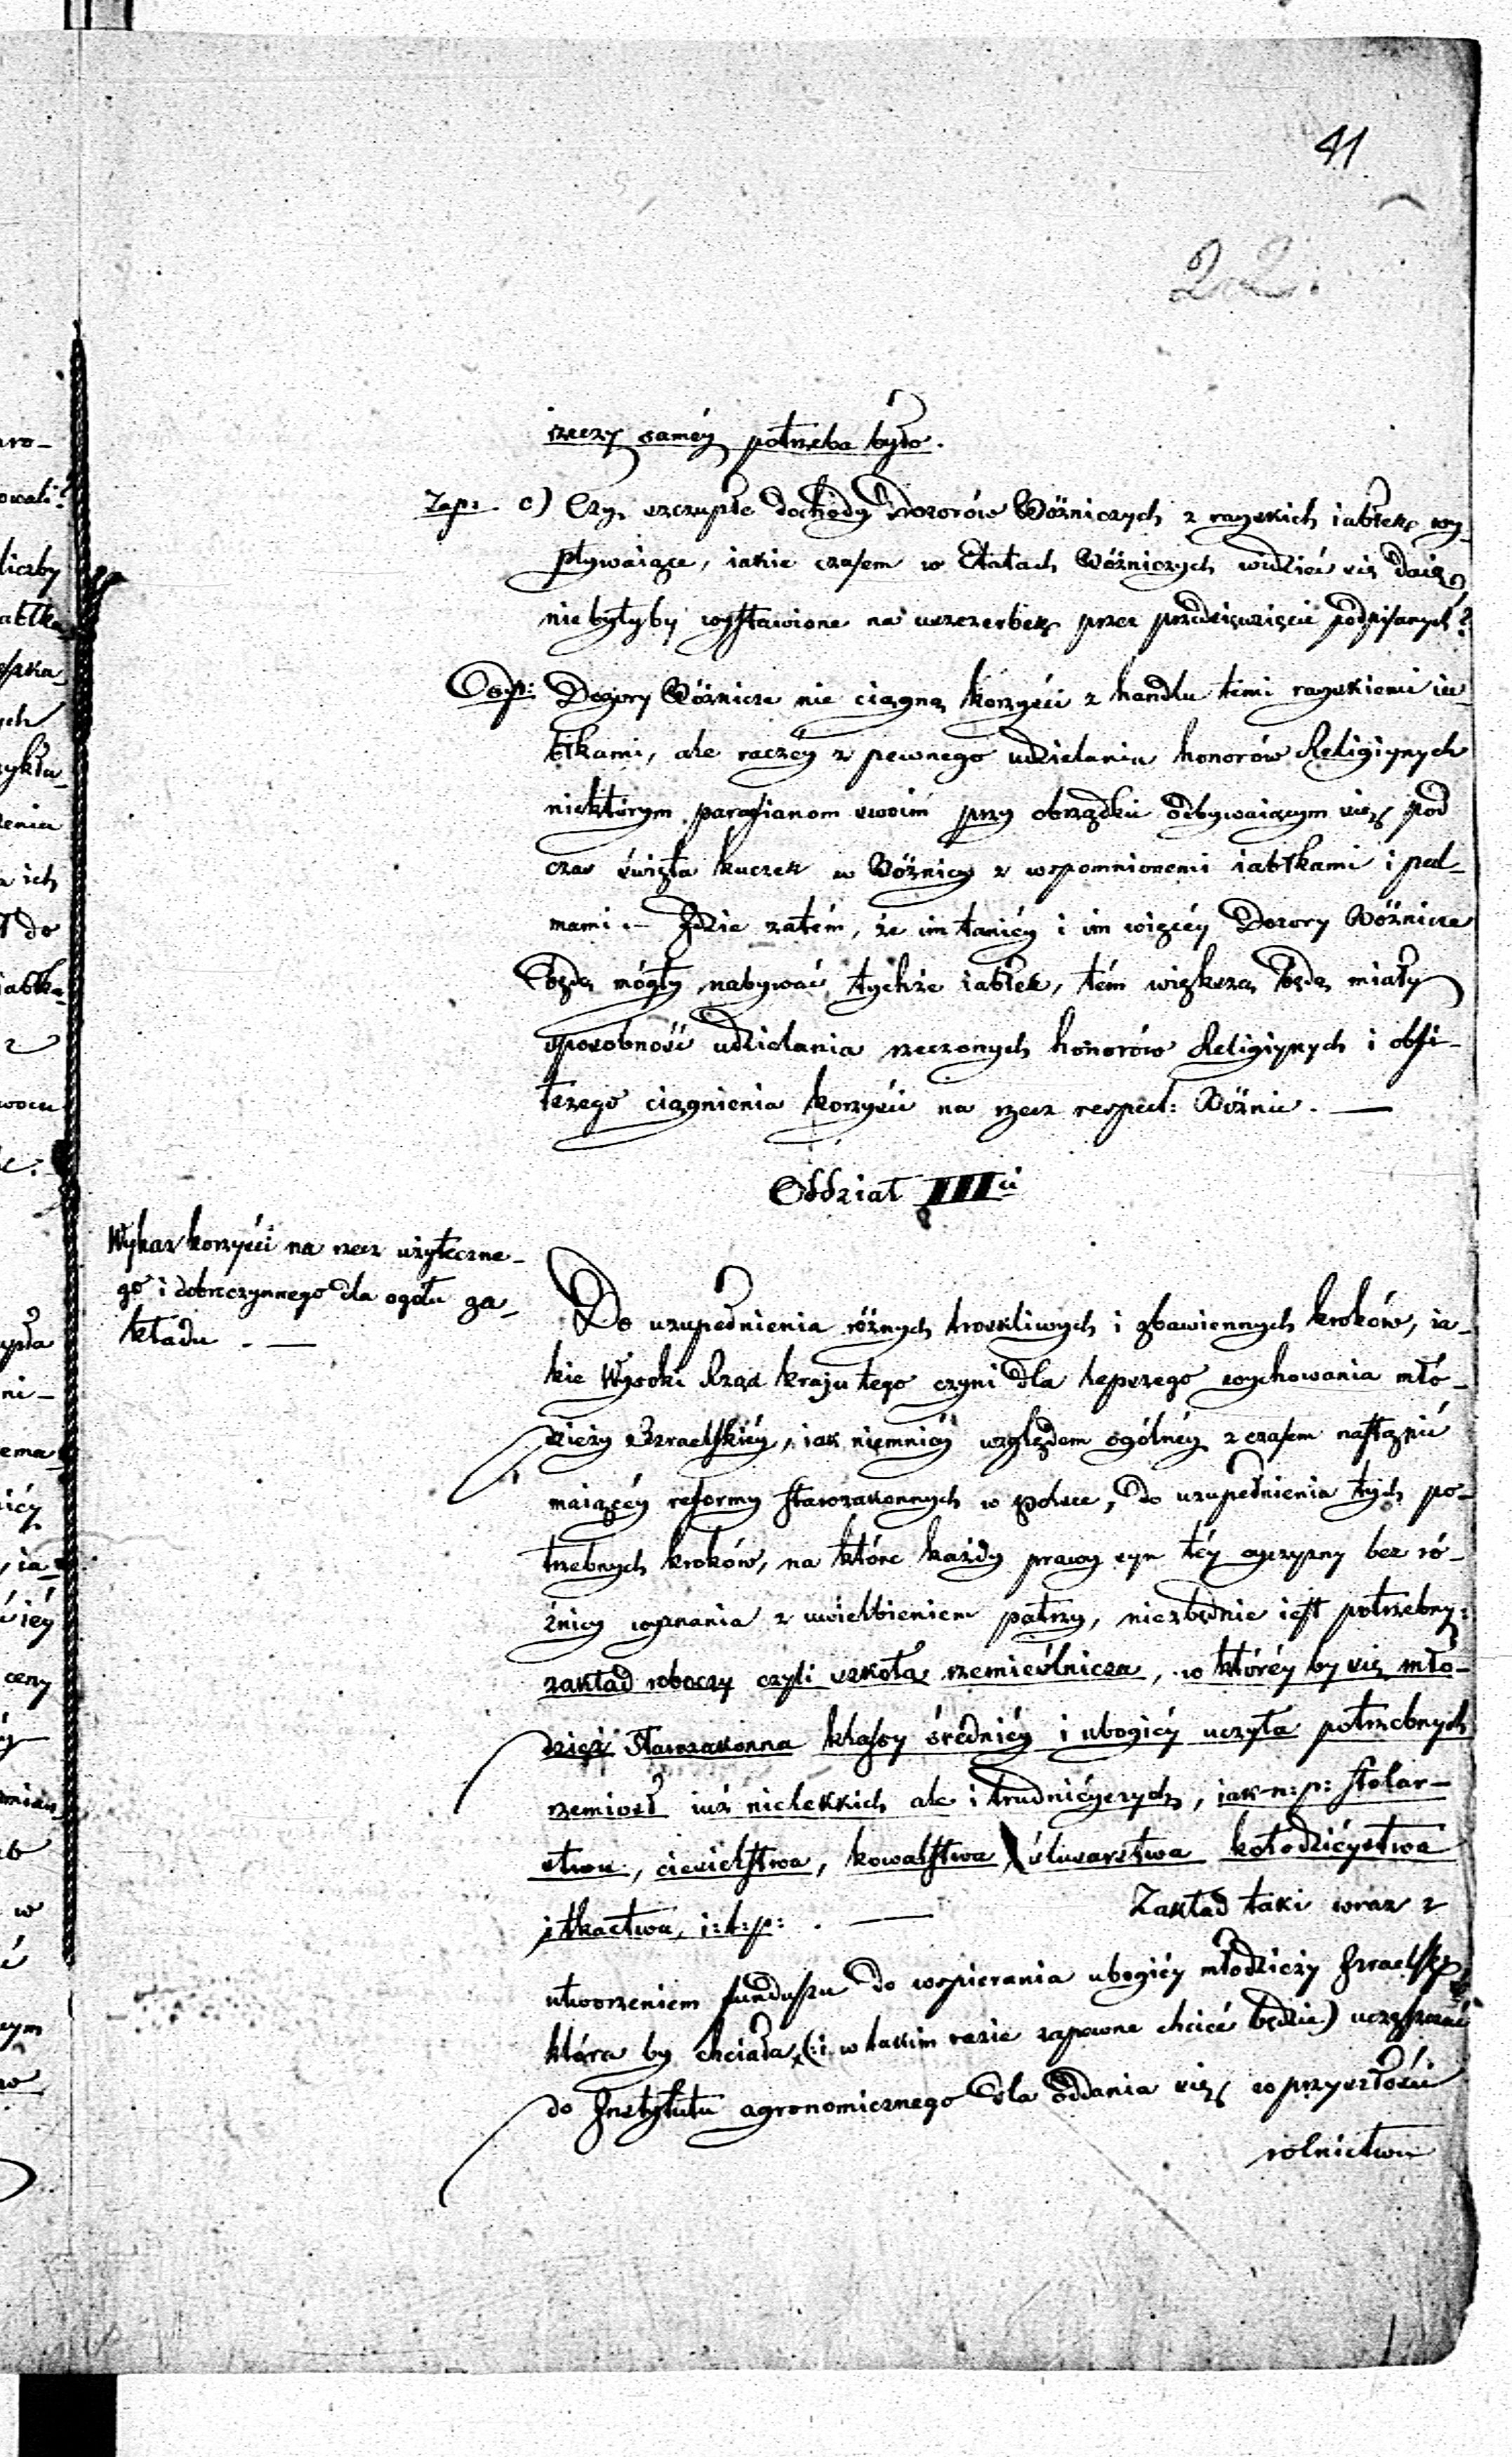 41
22.
rzeczy saméy potrzeba było.
Zap: c) Czy, szczupłe dochody Dozorów Bóżniczych z rayskich iabłek, wy-
pływaiące, iakie czasem w Etatach Bóżniczych widzieć się daią,
nie byłyby wystawione na uszczerbek, przez przedsięwzięcie podpisanych?
Odp: Dozory Bóżnicze nie ciągną korzyści z handlu temi rayskiemi ia-
błkami, ale raczéy z pewnego udzielania honorów Religiynych
niektórym parafianom swoim przy obrządku odbywaiącym się pod
czas święta kuczek w Bóżnicy z wspomnionemi iabłkami i pal-
mami. – Idzie zatém, że im taniéy i im więcéy Dozory Bóżnicze
będą mógły nabywać tychże iabłek, tém większą będą miały
sposobność udzielania rzeczonych honorów Religiynych i obfi-
tszego ciągnienia korzyści na rzecz respect: Bóżnic. —
Oddział III ci
Wykaz korzyści na rzecz użyteczne-
go i dobroczynnego dla ogółu za-
kładu. —
Do uzupełnienia różnych troskliwych i zbawiennych kroków, ia-
kie Wysoki Rząd kraju tego czyni dla lepszego wychowania mło-
dzieży Izraelskiéy, iak niemniéy względem ogólnéy z czasem nastąpić
maiącéy reformy starozakonnych w polsce, do uzupełnienia tych po-
trzebnych kroków, na które każdy prawy syn téy oyczyzny bez ró-
żnicy wyznania z uwielbieniem patrzy, niezbędnie iest potrzebny:
zakład roboczy czyli szkoła rzemieślnicza, w któréy by się mło-
dzież Starozakonna klassy średniéy i ubogiéy uczyła potrzebnych
rzemiosł iuż nielekkich ale i trudnieyszych, iak n: p: stolar-
stwa, ciesielstwa, kowalstwa, ślusarstwa kołodzieystwa
i tkactwa, i: t: p: . — Zakład taki wraz z
utworzeniem funduszu do wspierania ubogiéy młodzieży Izraelsk:
która by chciała, (: i w takim razie zapewne chcieć będzie) uczęszczać
do Instytutu agronomicznego dla oddania się w przyszłości
rolnictwu